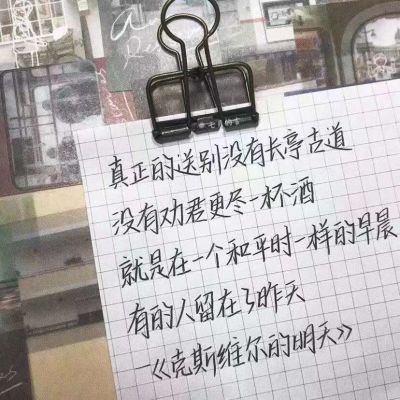 真正的送别没有长亭古道
没有劝君更尽一杯酒
就是在一个和平时一样的早晨
有的人留在了昨天
—《克斯维尔的明天》